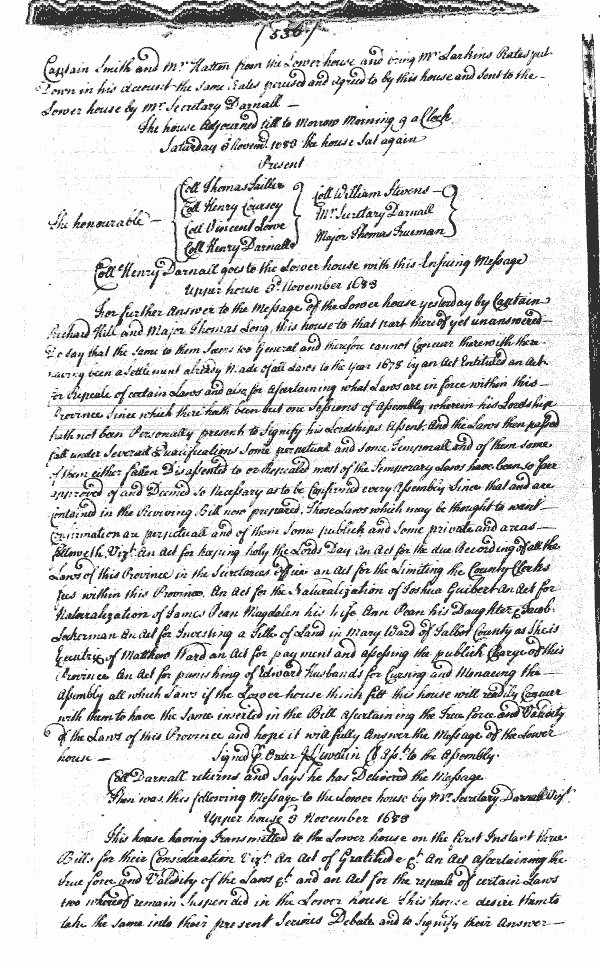 (536)
Captain Smith and Mr Hatton from the Lower house and bring Mr Larkins Rates put
Down in his account the same Rates perused and agreed to by this house and sent to the
Lower house by Mr Secretary Darnall
The house Adjourned till to Morrow Morning 9 a Clock
Saturday 3 Novemb 1683 the house Sat again
Present
The honourable
Coll Thomas Tailler
Coll Henry Coursey
Coll Vincent Lowe
Coll Henry Darnall
Coll William Stevens
Mr Secretary Darnall
Major Thomas Trueman
Coll Henry Darnall goes to the Lower house with this Ensuing Message
Upper house 3d November 1683
For further Answer to the Message of the Lower house yesterday by Captain
Richard Hill and Major Thomas Long, this house to that part thereof yet unanswered
Do say that the same to them Seems too General and therefore cannot Concur therewith there
having been a Settlement already made of all Laws to the year 1678 by an Act Entituled an Act
for Repeale of certain Laws and also for Ascertaining what Laws are in force within this
Province Since which there hath been but one Sessions of Assembly wherein his Lordship
hath not been Personally present to Signify his Lordships Assent And the Laws then passed
fall under Severall Qualifications Some perpetual and some Temporall and of them some
of them either fallen Disassented to or Repealed most of the Temporary Laws have been so far
approved of and Deemed So necessary as to be Confirmed every Assembly Since that and are
contained in the Reviving Bill now prepared, Those Laws which may be thought to want
Confirmation are perpetuall and of them Some publick and Some private and are as
followeth Vizt An Act for keeping holy the Lords Day An Act for the due Recording of all the
Laws of this Province in the Secretaries Office an Act for the Limiting the County Clerks
fees within this Province. An Act for the Naturalization of Joshua Guibert An Act for
Naturalization of James Pean Magdalen his wife Ann Pean his Daughter & Jacob
Lockerman An Act for Investing a Title of Land in Mary Ward of Talbot County as She is
Executrix of Matthew Ward an Act for payment and Assessing the publick Charge of this
Province An Act for punishing of Edward Husbands for Cursing and Menacing the
Assembly all which Laws if the Lower house think fitt this house will readily Concur
with them to have the Same inserted in the Bill Ascertaining the True force and Validity
of the Laws of this Province and hope it will fully Answer the Message of the Lower
house — Signed p Order J Llewellin Cl Assly to the Assembly.
Coll Darnall returns and Says he has Delivered the Message
Then was this following Message to the Lower house by Mr Secretary Darnall Vizt
Upper house 3 November 1683
This house having Transmitted to the Lower house on the first Instant three
Bills for their Consideration Vizt An Act of Gratitude &ct An Act Ascertaining the
True force and Validity of the Laws &ct and an Act for the repeale of certain Laws
two whereof remain Suspended in the Lower house This house desire them to
take the Same into their present Serious Debate and to Signify their Answer